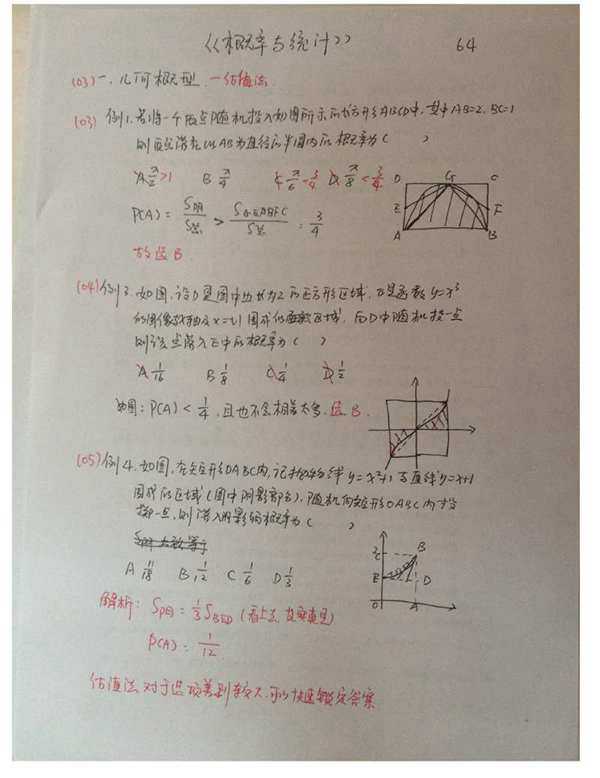 《概率与统计》 64
(03)一、几何概型. —估值法.
(03) 例1.若将一个质点随机投入如图所示的长方形ABCD中,其中AB=2,BC=1
则质点落在以AB为直径的半圆内的概率为( )
A π/2 >1 B π/4 C π/6 <3/4 D π/8 <3/4
D G C
E F
A B
P(A)= S阴/S总 > S /S总 = 3/4
故选B
(04) 例3.如图,设D是图中边长为2的正方形区域,E是函数y=x³
的图像与x轴及x=±1围成的区域,向D中随机投一点
则该点落入E中的概率为( )
A 1/16 B 1/8 C 1/4 D 1/2
如图:P(A)<1/4,且也不会相差太多.选B.
(05) 例4.如图,在矩形OABC内,记抛物线y=x²+1与直线y=x+1
围成的区域(图中阴影部分),随机向矩形OABC内
掷一点,则落入阴影的概率为( )
A 1/18 B 1/12 C 1/6 D 1/3
C B
E D
O A
解析:S阴=1/3 S
P(A)=1/12
估值法 对于选项差别较大,可以快速锁定答案